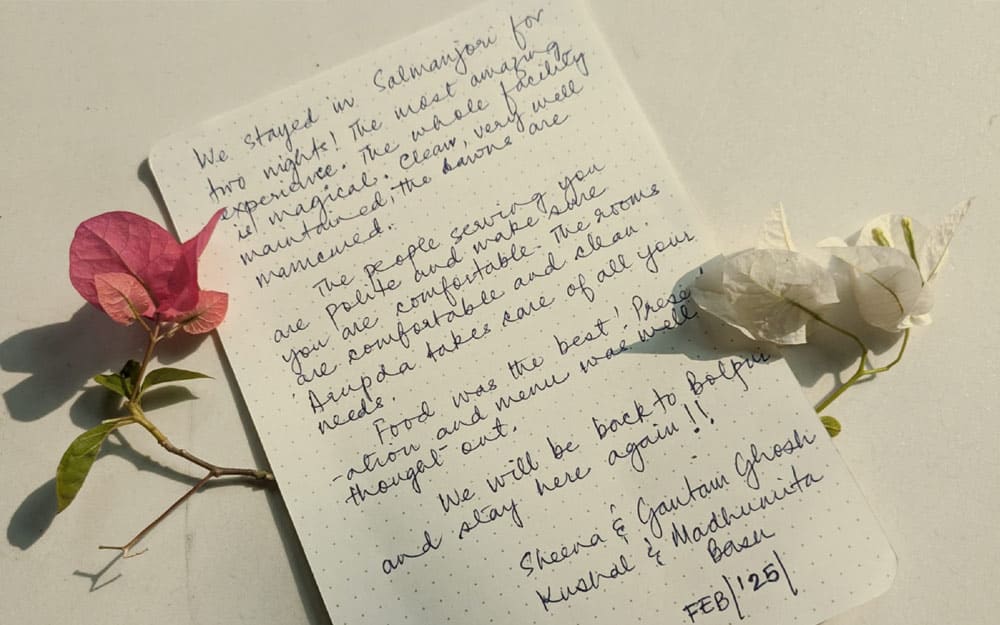 We stayed in Salmanjori for
two nights! The most amazing
experience. The whole facility
is magical. Clean, very well
maintained, the lawns are
manicured.
The people serving you
are polite and make sure
you are comfortable. The rooms
are comfortable and clean.
Arupda takes care of all your
needs.
Food was the best! Prese
-ation and menu was well
thought out.
We will be back to Bolpur
and stay here again!!
Sheena & Gautam Ghosh
Kushal & Madhumita
Basu
FEB|'25|